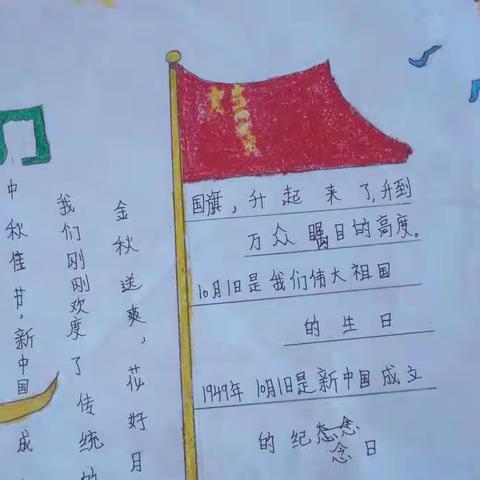 国旗，升起来了，升到
万众瞩目的高度。
10月1日是我们伟大祖国
的生日
1949年10月1日是新中国成立
的纪念
念日
金秋送爽，花好月
我们刚刚欢度了传统的
中秋佳节，新中国成